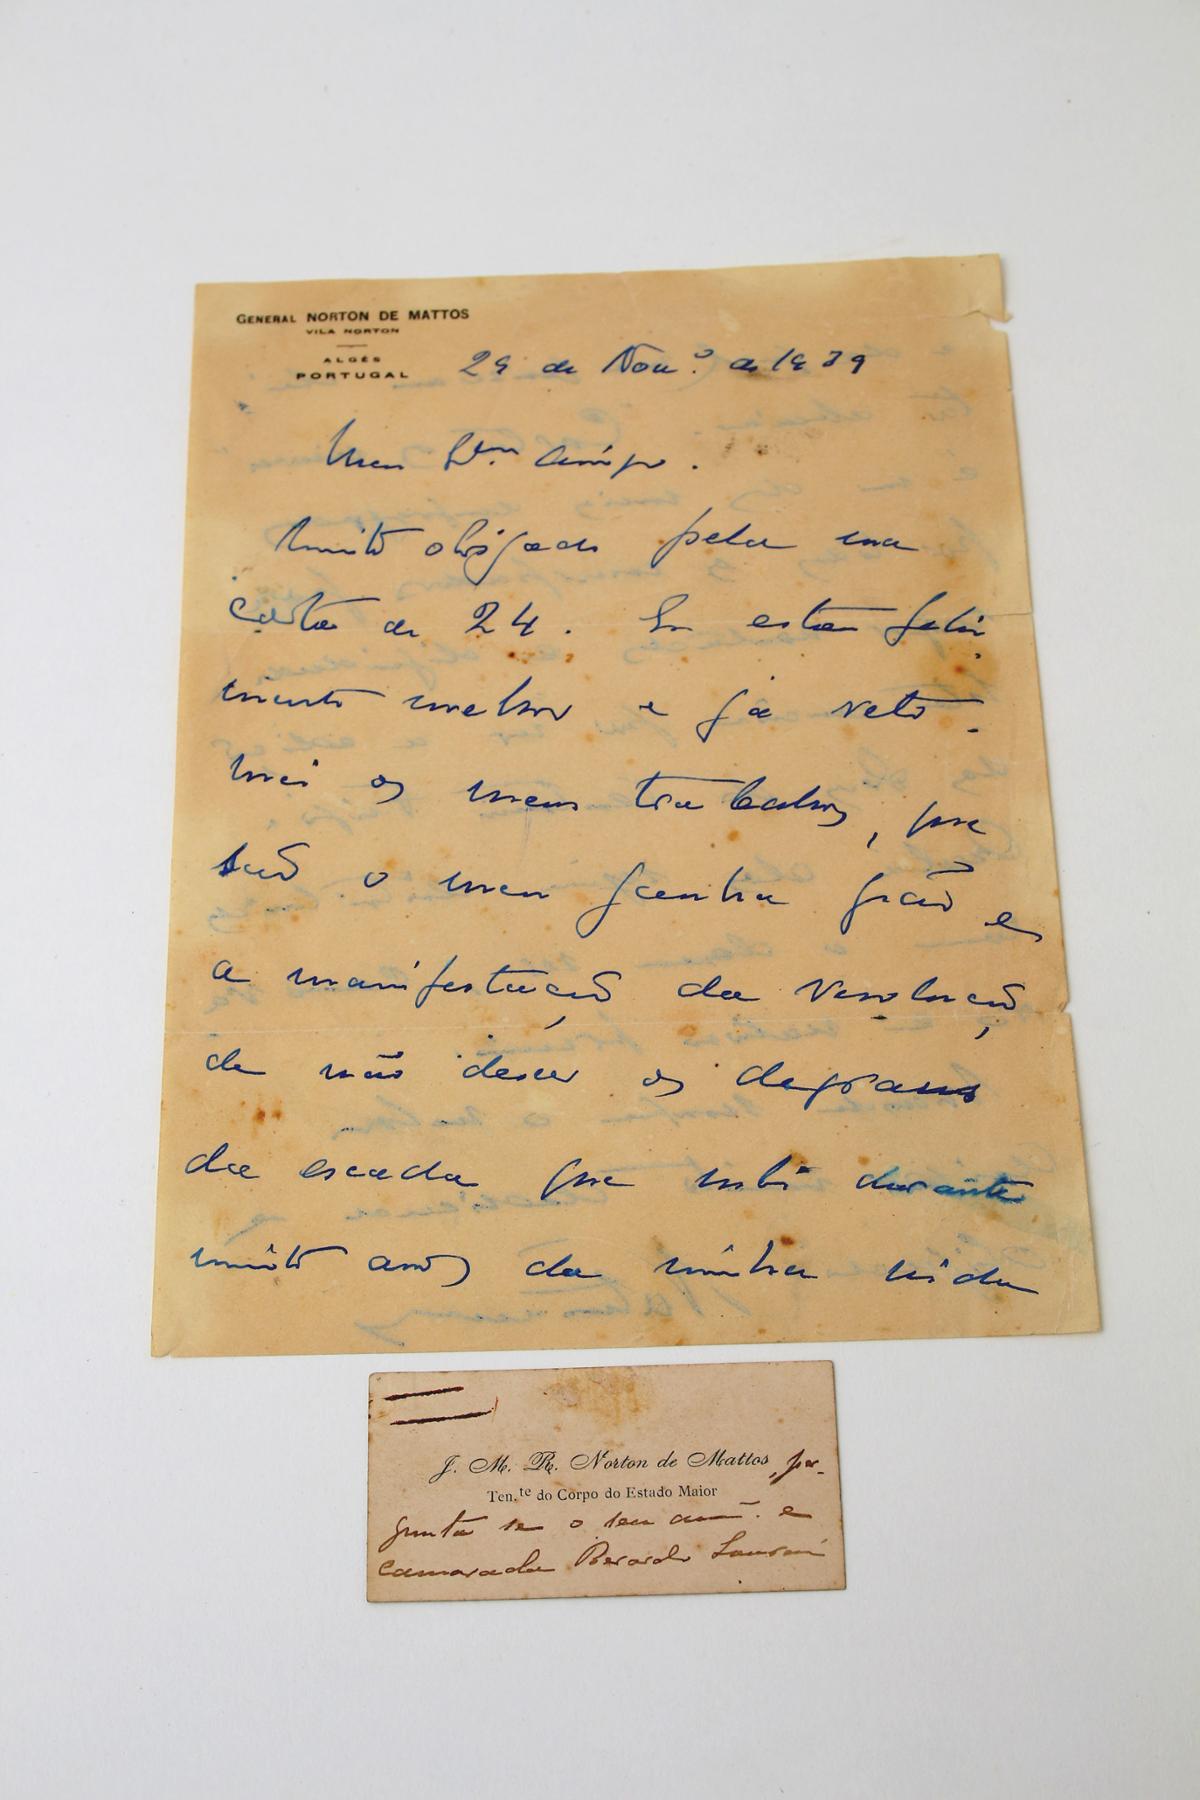 GENERAL NORTON DE MATTOS
VILA NORTON
ALGÉS
PORTUGAL
29 de Nov.º de 1939
Meu amigo.
Muito obrigado pela sua
carta de 24. Eu estou feliz-
mente melhor e já reto-
mei os meus trabalhos, que
são o meu ganha pão e
a manifestação da resolução,
de não descer os degraus
da escada que subi durante
muitos anos da minha vida
J. M. R. Norton de Mattos, per-
Ten.te do Corpo do Estado Maior
gunta se o seu am.º e
camarada Berardo